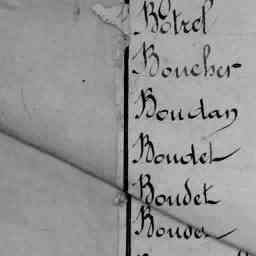 Bétrel
Boucher
Boudan
Boudet
Boudet